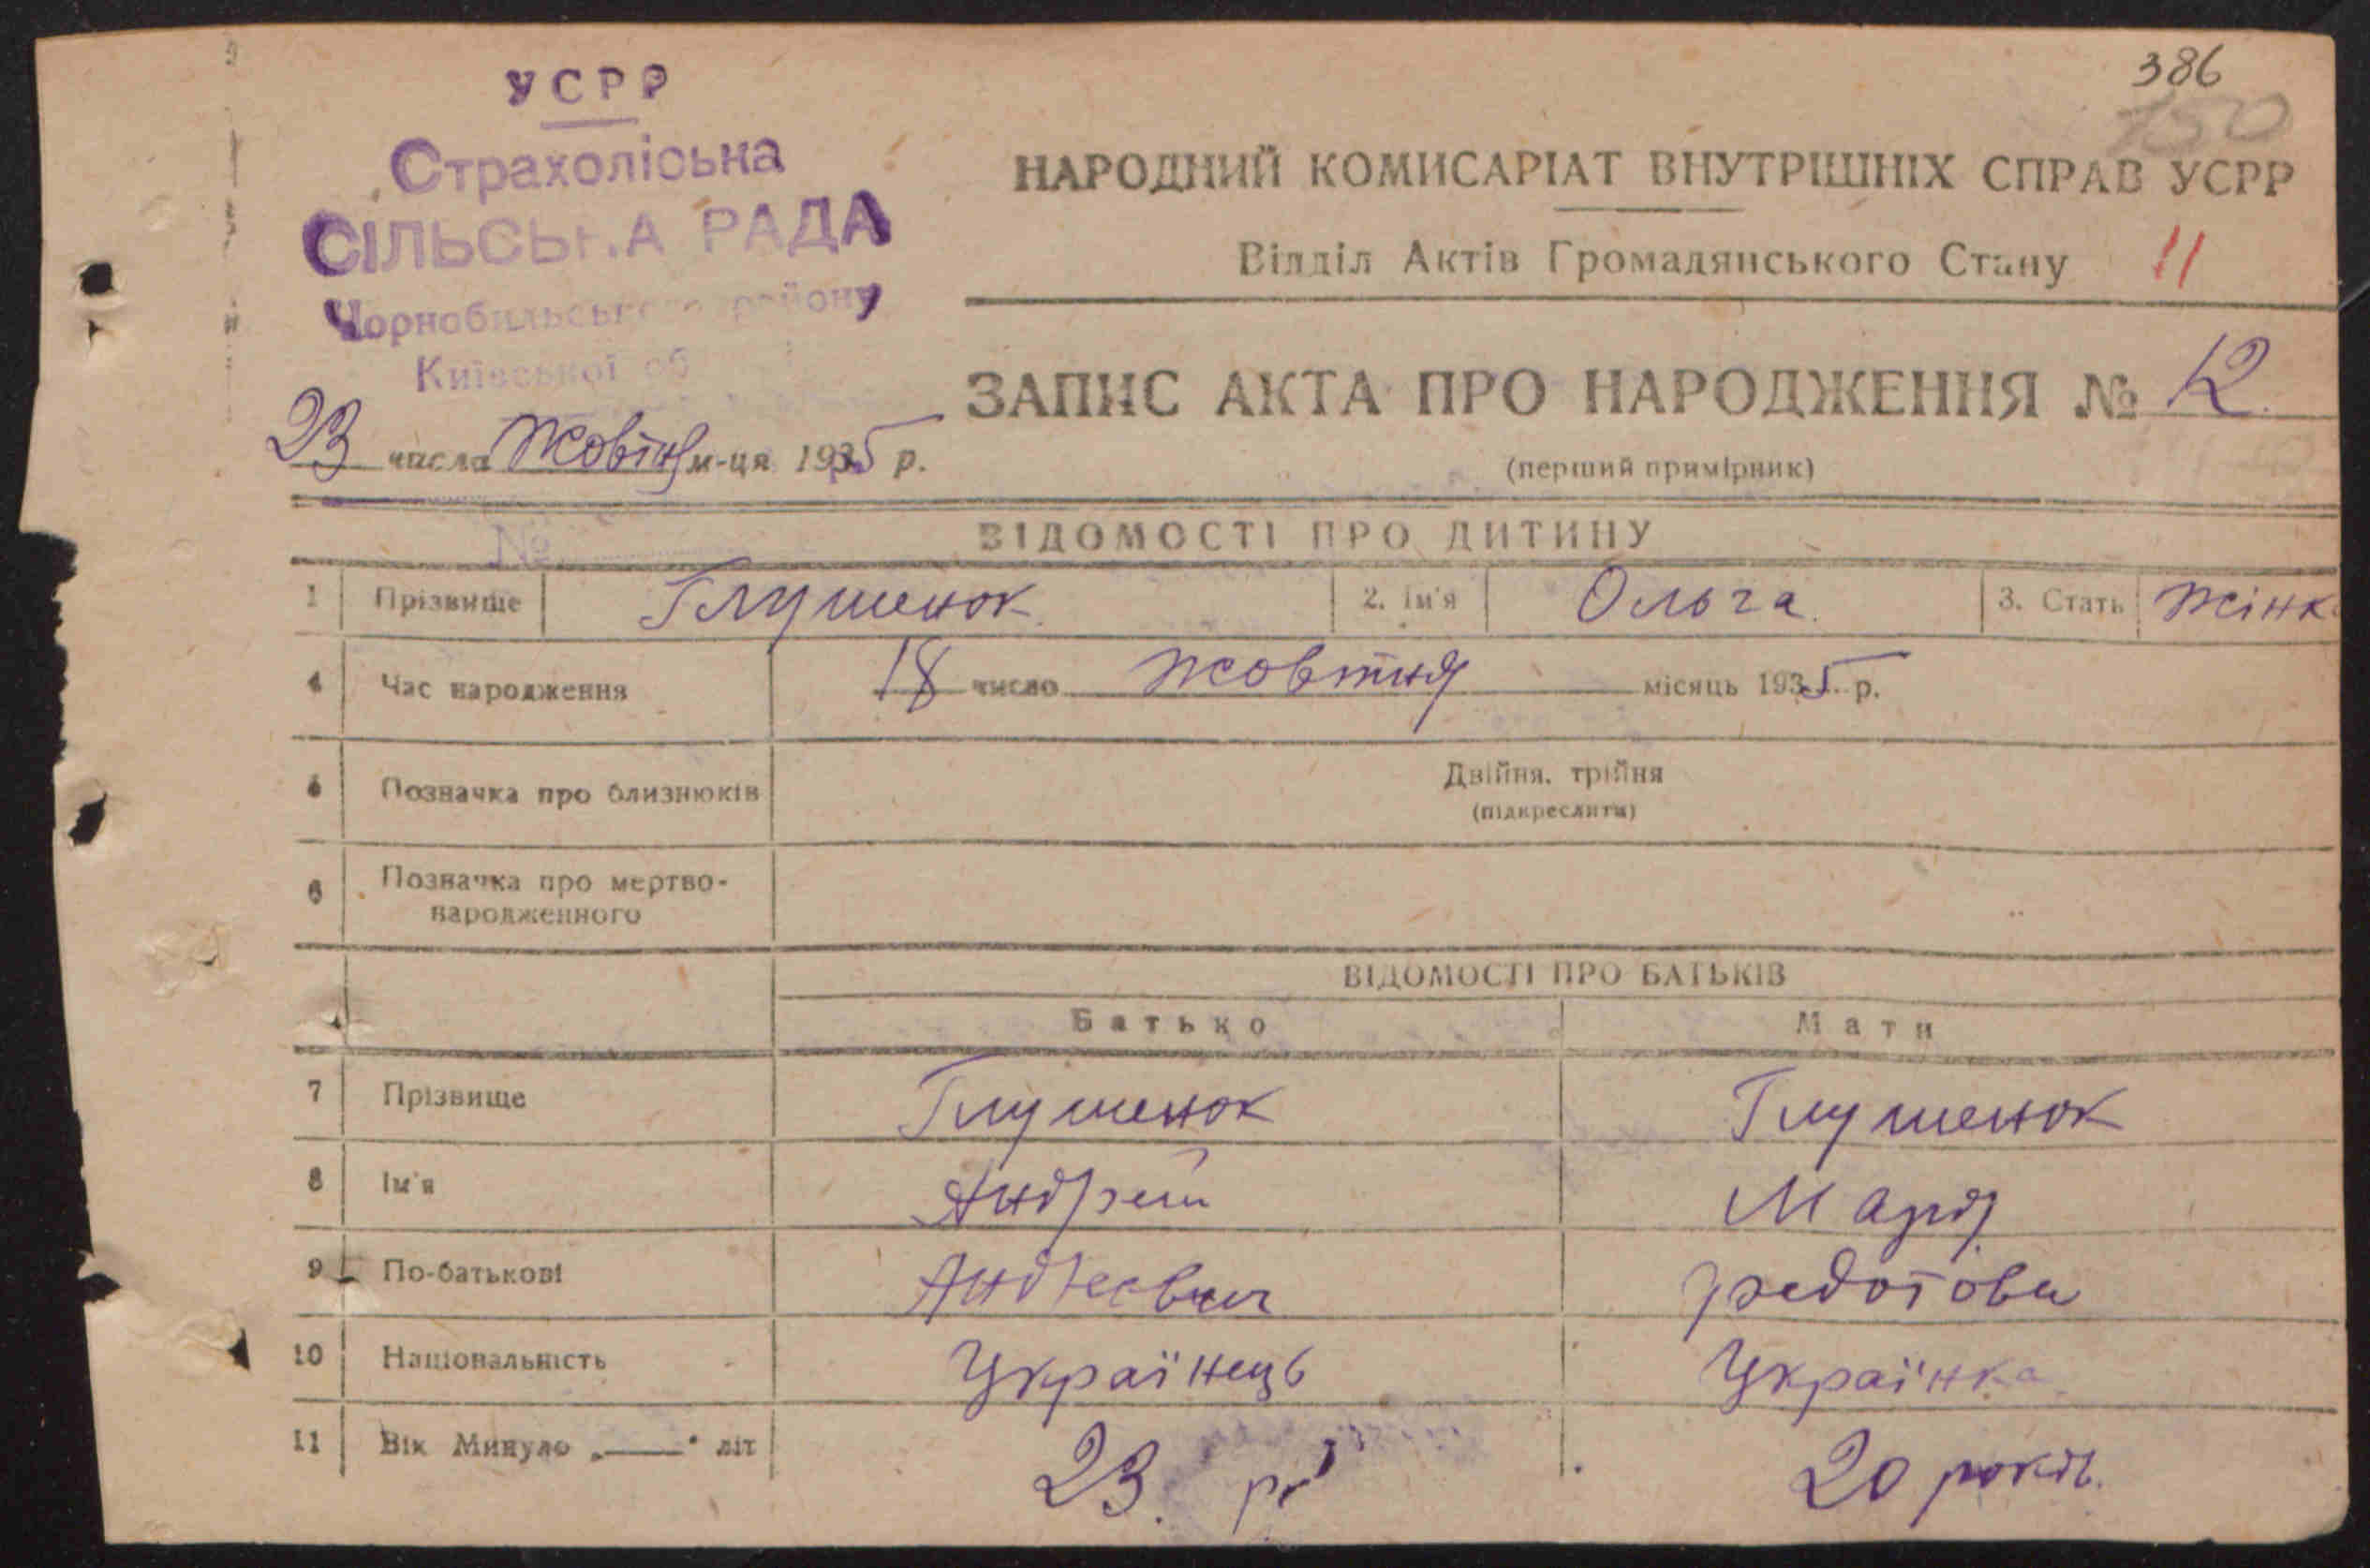 386
150
УСРР
Страхоліська
СІЛЬСЬКА РАДА
Чорнобильського району
Київської об
НАРОДНИЙ КОМИСАРІАТ ВНУТРІШНІХ СПРАВ УСРР
Відділ Актів Громадянського Стану 11
ЗАПИС АКТА ПРО НАРОДЖЕННЯ № 12.
23 числа Жовтня м-ця 1935 р.
(перший примірник)
№
ВІДОМОСТІ ПРО ДИТИНУ
1 Прізвище Глушенок 2. Ім'я Ольга 3. Стать жінк
4 Час народження 18 число жовтня місяць 1935 р.
5 Позначка про близнюків Двійня, трійня
(підкреслити)
6 Позначка про мертво-
народженного
ВІДОМОСТІ ПРО БАТЬКІВ
Батько Мати
7 Прізвище Глушенок Глушенок
8 Ім'я Андрей Марія
9 По-батькові Федотова
10 Національність Українець Українка
11 Вік Минуло „—" літ 23 20 років.